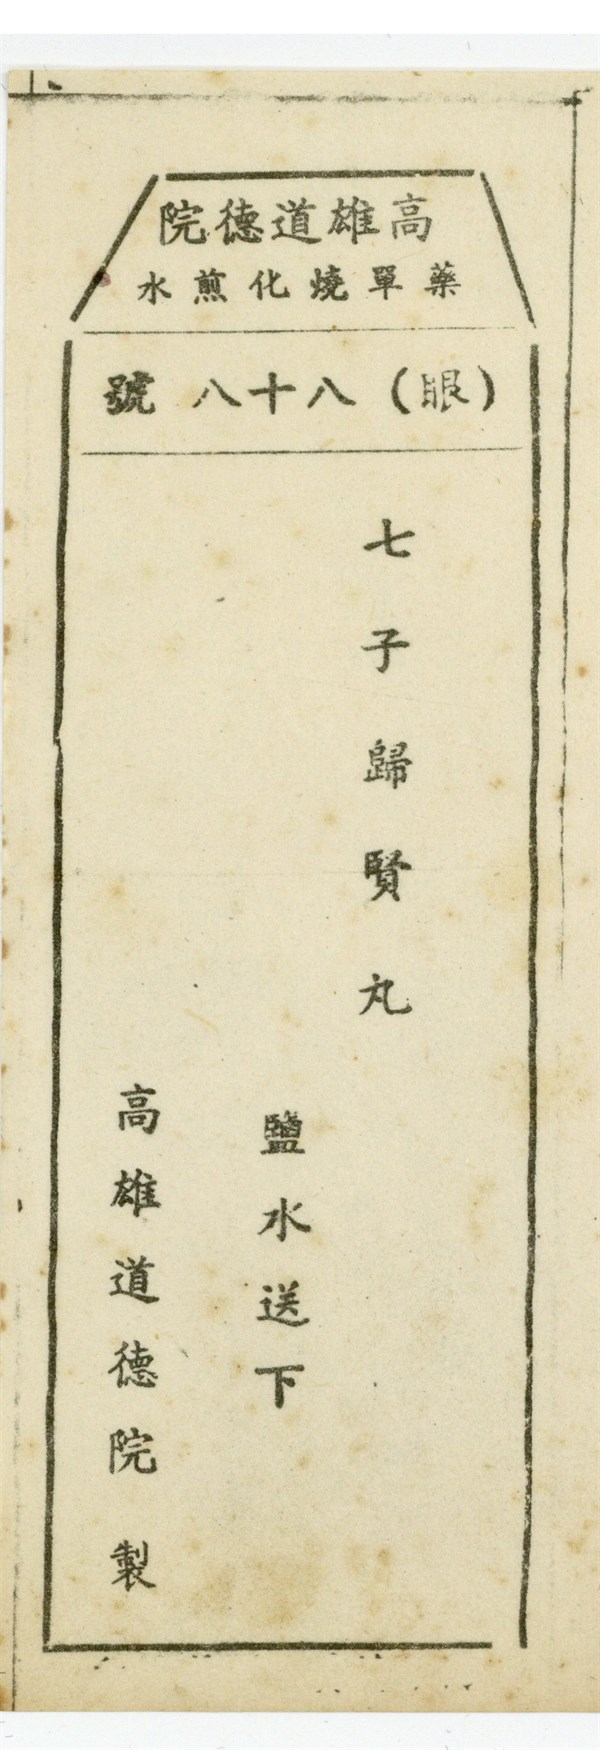 高雄道德院
藥單燒化煎水
（眼）八十八號
七子歸賢丸
鹽水送下
高雄道德院製